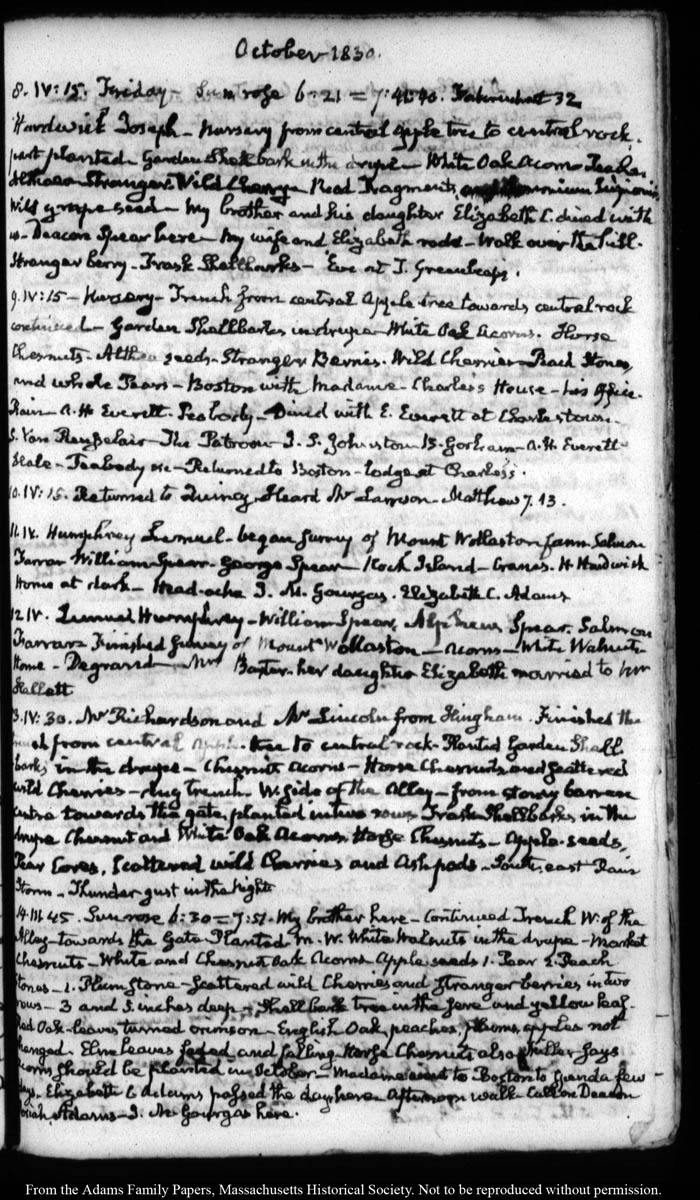 October 1830.
8. IV:15. Friday - Sun rose 6:21 = 7: Fahrenheit 32
Hardwick Joseph - Nursery from central apple tree to central rock.
part planted - Garden Shellbark in the drupe - White Oak Acorns Peaches
Althaea Stranger Wild Cherry - Read Fragments,
Wild grape seed - My brother and his daughter Elizabeth C. dined with
us - Deacon Spear here - My wife and Elizabeth rode - Walk over the hill.
Stranger berry - Trask Shellbarks - Eve at T. Greenleaf's.
9. IV:15 - Nursery - Trench from central Apple tree towards central rock
continued - Garden Shellbarks in drupe White Oak Acorns. Horse
Chesnuts - Althea seeds - Stranger Berries. Wild Cherries - Peach Stones,
and whole Pears - Boston with Madame - Charles's House - his Office.
Rain - A. H. Everett. Peabody - Dined with E. Everett at Charlestown.
S. Van Rensselair - The Patroon - J. S. Johnston B. Gorham - A. H. Everett
Peabody - Returned to Boston - lodge at Charles's.
10. IV:15. Returned to Quincy. Heard Mr Lamson - Matthew 7. 13.
11. IV. Humphrey Lemuel - began survey of Mount Wollaston farm Salmon
Farrar William Spear - George Spear - Rock Island - Cranes. H Hardwick
Home at dark - Head-ache J. M. Gourgas. Elizabeth C. Adams
12 IV. Lemuel Humphrey - William Spear, Alpheus Spear. Salmon
Farrar. Finished survey of Mount Wollaston - acorns - White Walnuts
Home - Degrand - Mrs Baxter - her daughter Elizabeth married to Mr
Hallett
3. IV:30. Mr Richardson and Mr Lincoln from Hingham. Finished the
trench from central apple tree to central rock - Planted Garden Shell
barks in the drupe - Chesnuts Acorns - Horse Chesnuts and scattered
wild Cherries - dug trench W. side of the Alley - from stony barren
centre towards the gate, planted in two rows Trask Shellbarks in the
drupe Chesnut and White Oak Acorns Horse Chesnuts - Apple-seeds,
Pear Cores, Scattered wild Cherries and Ash pods - South east Rain
Storm - Thunder gust in the night
14. III.45. Sun rose 6:30 = 7:51. My brother here - Continued Trench W. of the
Alley - towards the Gate Planted M. W. White Walnuts in the drupe - Market
Chesnuts - White and Chesnut Oak Acorns Apple seeds 1. Pear 2. Peach
Stones - 1. Plum Stone - Scattered wild Cherries and Stranger berries in two
rows - 3 and 5 inches deep - Shellbark tree in the
Oak - leaves turned crimson - English Oak, peaches, plums, apples not
changed. Elm leaves faded and falling Horse Chesnuts also Miller says
acorns should be planted in October - Madame went to Boston to spend a few
days. Elizabeth C Adams passed the day here. Afternoon walk. Call on Deacon
Josiah Adams - J. M. Gourgas here.
From the Adams Family Papers, Massachusetts Historical Society. Not to be reproduced without permission.